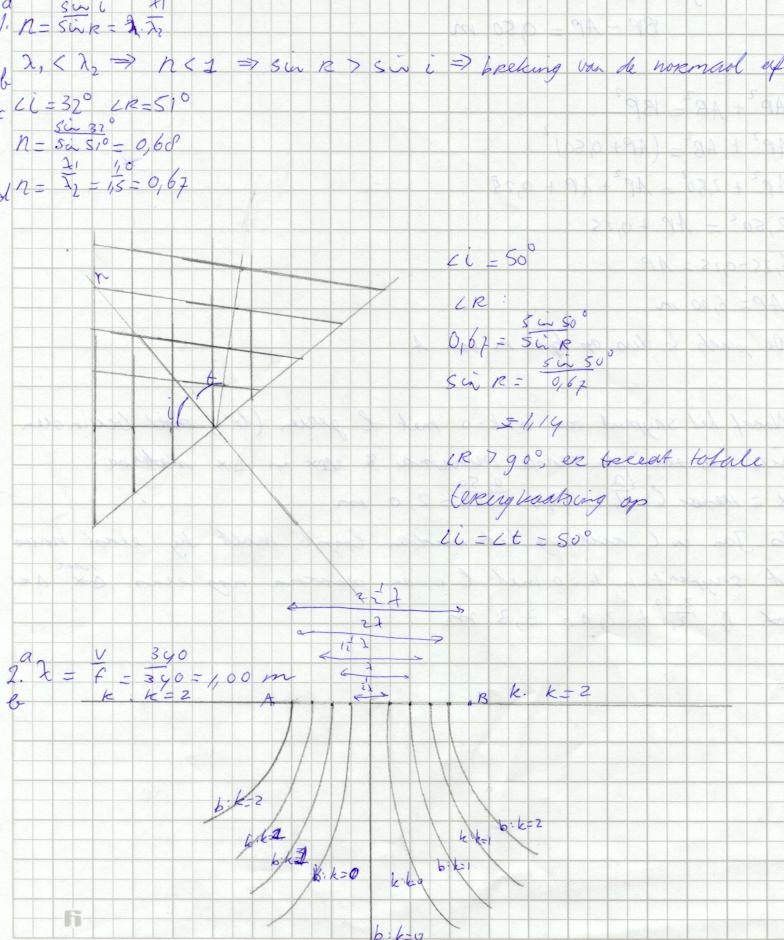 a
1. n = sin i / sin R = λ1 / λ2
b λ1 < λ2 ⇒ n < 1 ⇒ sin R > sin i ⇒ breking van de normaal af
c ∠i = 32° ∠R = 51°
n = sin 32° / sin 51° = 0,68
d n = λ1 / λ2 = 1,0 / 1,5 = 0,67
r
i
t
∠i = 50°
∠R :
0,67 = sin 50° / sin R
sin R = sin 50° / 0,67
= 1,14
∠R > 90°, er treedt totale
terugkaatsing op
∠i = ∠t = 50°
2½ λ
2λ
1½ λ
λ
½λ
2. a λ = v / f = 340 / 340 = 1,00 m
b k. k=2
A
B
k. k=2
b: k=2
k: k=1
b: k=1
k: k=0
b: k=0
k: k=0
b: k=1
k: k=1
b: k=2